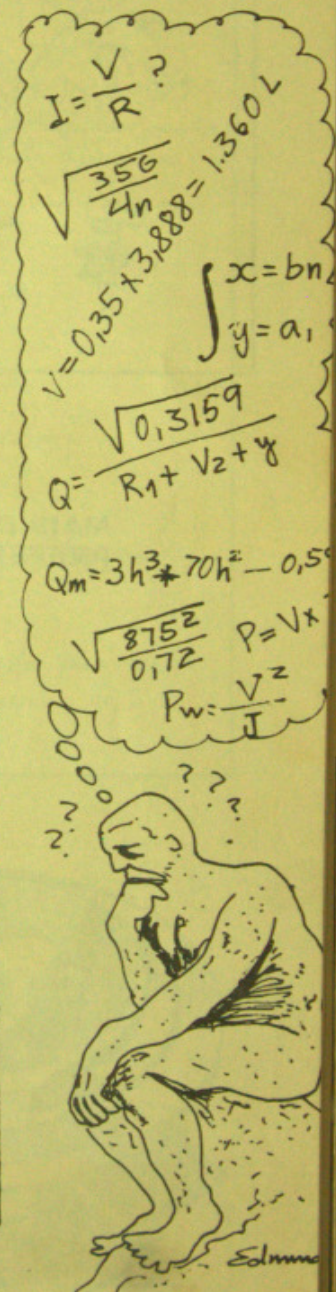 I = V/R ?
√(356/4n)
V = 0,35 x 3,888 = 1.360 L
∫ x = bn
y = a,
Q = √0,3159 / R1 + V2 + y
Qm = 3h³ + 70h² — 0,5
√(8752/0,72)
P = Vx
Pw = V²/I
? ? ?
? ?